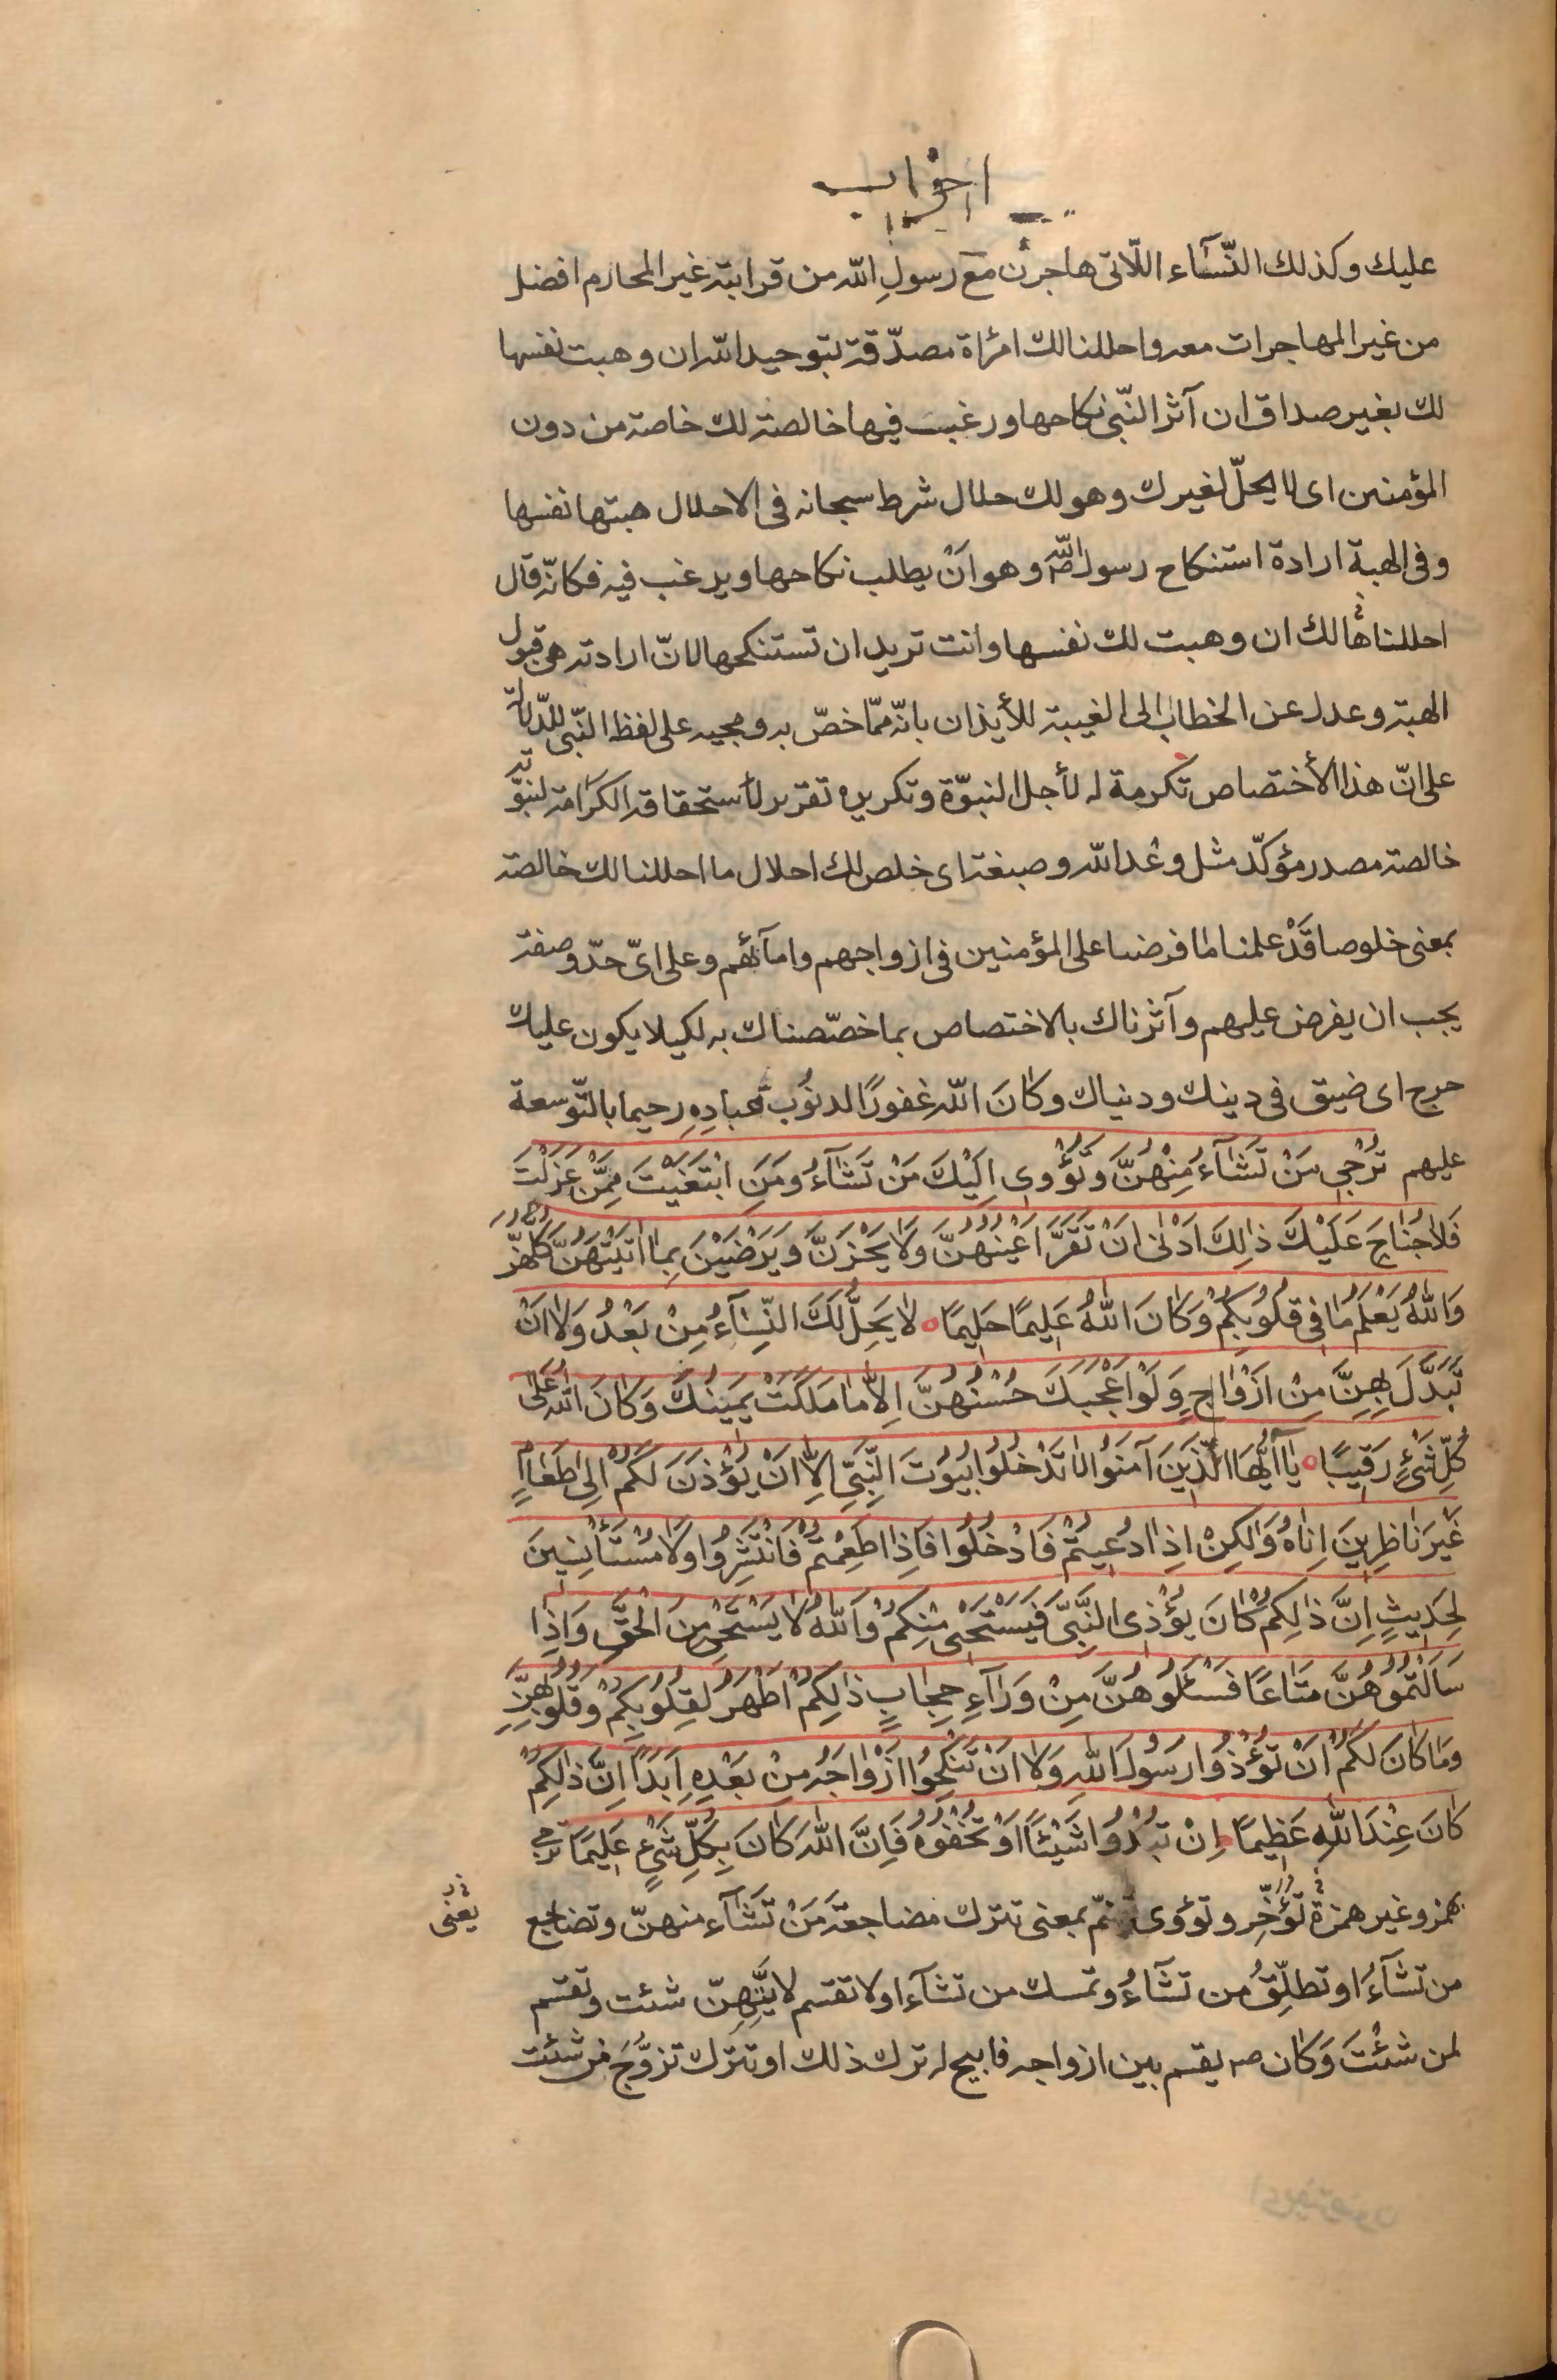 احزاب
عليك وكذلك النّسآء اللّاتى هاجرن مع رسولِ الله من قرابته غير المحارم افضل
من غير المهاجرات معه واحللنا لك امرأة مصدّقة بتوحيد الله ان وهبت نفسها
لك بغير صداق ان آثر النّبى نكاحها ورغب فيها خالصة لك خاصة من دون
المؤمنين اى لا يحلّ لغيرك وهو لك حلال شرط سبحانه فى الاحلال هبتها نفسها
وفى الهبة ارادة استنكاح رسول الله وهو انْ يطلب نكاحها ويرغب فيه فكانّه قال
احللناها لك ان وهبت لك نفسها وانت تريد ان تستنكحها لانّ ارادته هى قبول
الهبة وعدل عن الخطاب الى الغيبة للأيذان بانّه ممّا خصّ به ومجيه على لفظ النّبى للدّلالة
على انّ هذا الأختصاص تكرمة له لأجل النبوّة وتكريره تقرير لأستحقاقه الكرامة لنبوّته
خالصة مصدر مؤكدّ مثل وعْد الله وصبغة اى خلص لك احلال ما احللنا لك خالصة
بمعنى خلوصا قَدْ علمنا ما فرضنا على المؤمنين فى ازواجهم وامآئهم وعلى اىّ حدّ وصفة
يجب ان يفرض عليهم وآثرناك بالاختصاص بما خصّصناك به لكيلا يكون عليك
حرج اى ضيق فى دينك ودنياك وكانَ الله غفورًا لذنوُب عبادِهِ رحيما بالتّوسعة
عليهم تُرْجى مَنْ تَشَآءُ مِنْهُنَّ وَتُؤْوى اِلَيْكَ مَنْ تَشَآءُ وَمَنِ ابْتَغَيْتَ مِمَّنْ عَزَلْتَ
فَلَا جُنَاحَ عَلَيْكَ ذٰلِكَ اَدْنٰى اَنْ تَقَرَّ اَعْيُنُهُنَّ وَلَا يَحْزَنَّ وَيَرْضَيْنَ بِمَا اٰتَيْتَهُنَّ كُلُّهُنَّ
وَاللهُ يَعْلَمُ مَا فِى قُلُوبِكُمْ وَكَانَ اللهُ عَلِيمًا حَلِيمًا لَا يَحِلُّ لَكَ النِّسَآءُ مِنْ بَعْدُ وَلَا اَنْ
تَبَدَّلَ بِهِنَّ مِنْ اَزْوَاجٍ وَلَوْ اَعْجَبَكَ حُسْنُهُنَّ اِلَّا مَا مَلَكَتْ يَمِينُكَ وَكَانَ اللهُ عَلٰى
كُلِّ شَىْءٍ رَقِيبًا يَا اَيُّهَا الَّذِينَ آمَنُوا لَا تَدْخُلُوا بُيُوتَ النَّبِىِّ اِلَّا اَنْ يُؤْذَنَ لَكُمْ اِلٰى طَعَامٍ
غَيْرَ نَاظِرِينَ اِنَاهُ وَلٰكِنْ اِذَا دُعِيتُمْ فَادْخُلُوا فَاِذَا طَعِمْتُمْ فَانْتَشِرُوا وَلَا مُسْتَأْنِسِينَ
لِحَدِيثٍ اِنَّ ذٰلِكُمْ كَانَ يُؤْذِى النَّبِىَّ فَيَسْتَحْيى مِنْكُمْ وَاللهُ لَا يَسْتَحْيى مِنَ الْحَقِّ وَاِذَا
سَاَلْتُمُوهُنَّ مَتَاعًا فَسْئَلُوهُنَّ مِنْ وَرَآءِ حِجَابٍ ذٰلِكُمْ اَطْهَرُ لِقُلُوبِكُمْ وَقُلُوبِهِنَّ
وَمَا كَانَ لَكُمْ اَنْ تُؤْذُوا رَسُولَ اللهِ وَلَا اَنْ تَنْكِحُوا اَزْوَاجَهُ مِنْ بَعْدِهِ اَبَدًا اِنَّ ذٰلِكُمْ
كَانَ عِنْدَ اللهِ عَظِيمًا اِنْ تُبْدُوا شَيْئًا اَوْ تُخْفُوهُ فَاِنَّ اللهَ كَانَ بِكُلِّ شَىْءٍ عَلِيمًا ترجى
بهمز وغير همزة تُؤَخِّر وتؤوى تضمّ بمعنى تترك مضاجعة مَنْ تَشَآء منهنّ وتضاجع
يعنى
من تشآءُ او تطلِّقُ من تشآءُ وتمسك من تشآء او لا تقسم لايّتهِنّ شئت وتقسم
لمن شئْتَ وَكان ص يقسم بين ازواجه فابيح له ترك ذلك او تترك تزوّجَ من شئت